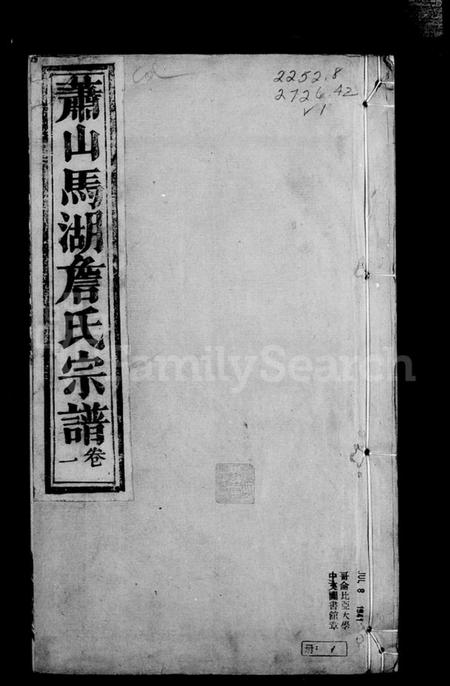 蕭山馬湖詹氏宗譜
卷一
2252.8
2726.42
v1
FamilySearch
哥倫比亞大學
中英圖書館章
JUL 8 1941
冊: 1